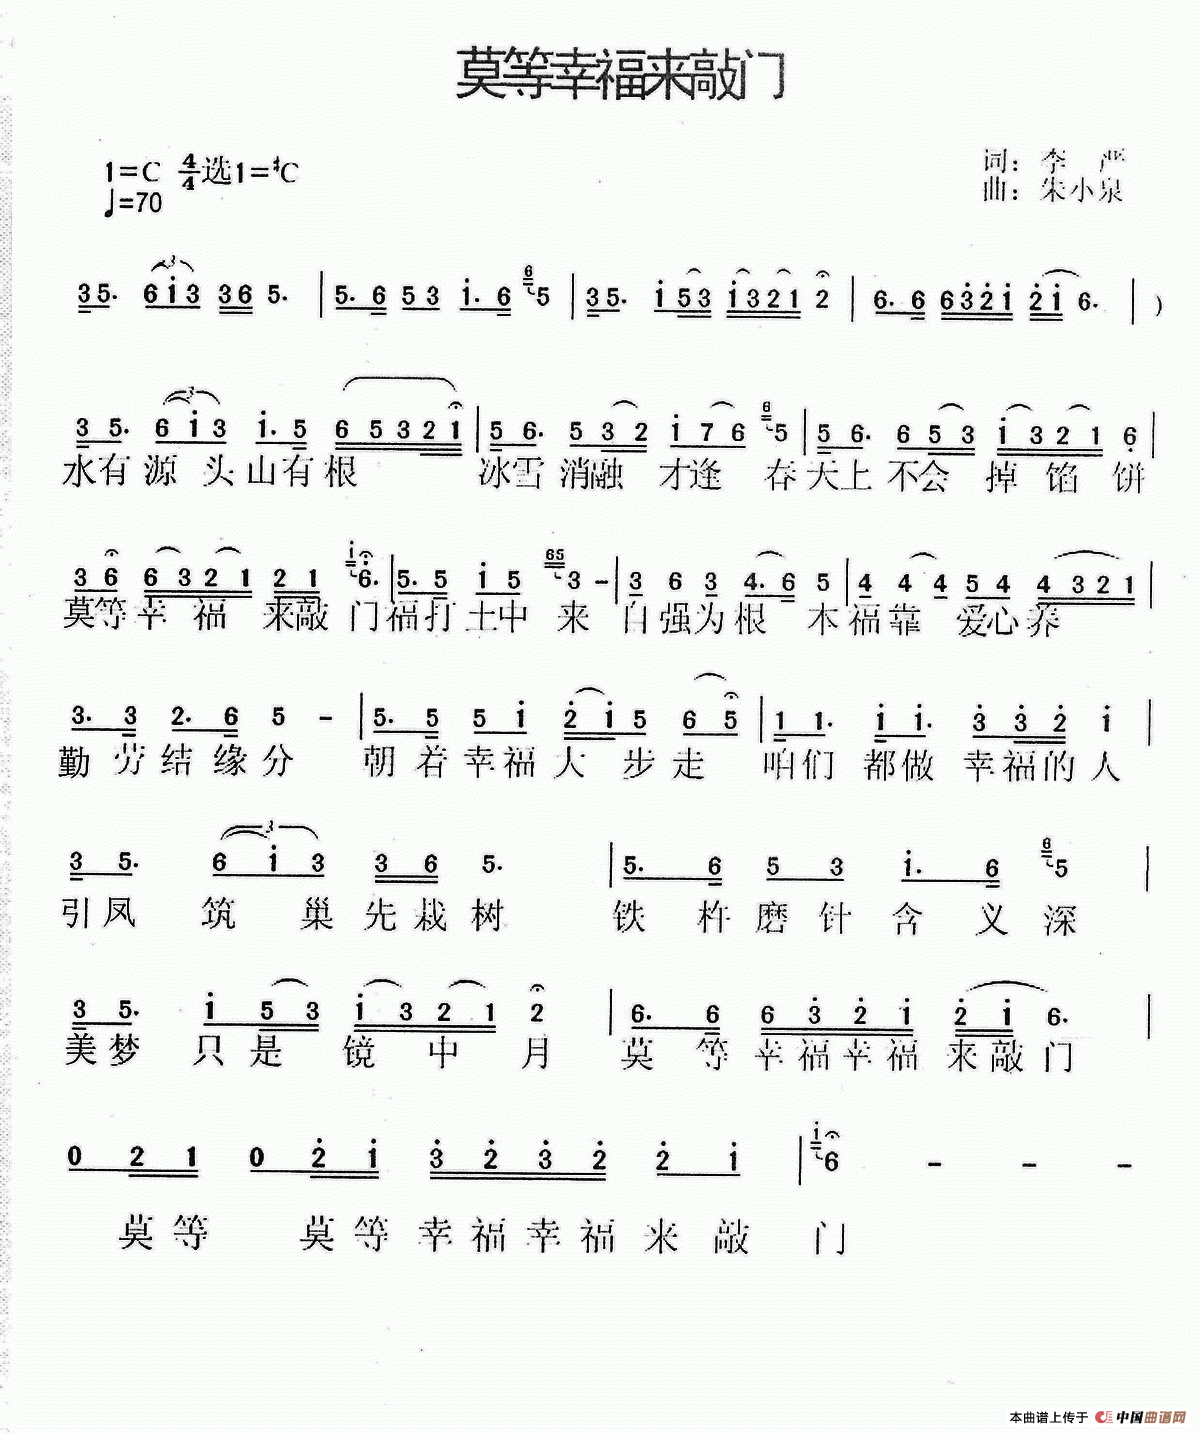 莫等幸福来敲门
1=C 4/4 选1=♯C
词：李 严
♩=70
曲：朱小泉
3 5. 6 i 3 3 6 5. | 5. 6 5 3 i. 6 6 5 | 3 5. i 5 3 i 3 2 1 2 | 6. 6 6 3 2 i 2 i 6. | )
3 5. 6 i 3 i. 5 6 5 3 2 1 | 5 6. 5 3 2 i 7 6 6 5 | 5 6. 6 5 3 i 3 2 1 6 |
水有 源 头山有根 冰雪 消融 才逢 春 天上 不会 掉 馅 饼
3 6 6 3 2 1 2 1 i 6. | 5. 5 i 5 65 3 – | 3 6 3 4. 6 5 | 4 4 4 5 4 4 3 2 1 |
莫等 幸 福 来敲 门 福打 土中 来 自强为根 本 福靠 爱心养
3. 3 2. 6 5 – | 5. 5 5 i 2 i 5 6 5 | 1 1. i i. 3 3 2 i |
勤 劳 结 缘 分 朝 着 幸 福 大 步 走 咱们 都做 幸福的人
3 5. 6 i 3 3 6 5. | 5. 6 5 3 i. 6 6 5 |
引凤 筑 巢 先 栽 树 铁 杵 磨 针 含 义 深
3 5. i 5 3 i 3 2 1 2 | 6. 6 6 3 2 i 2 i 6. |
美梦 只是 镜 中 月 莫 等 幸福幸福 来敲门
0 2 1 0 2 i 3 2 3 2 2 i | i 6 – – –
莫等 莫等 幸福幸福来 敲 门
本曲谱上传于 中国曲谱网